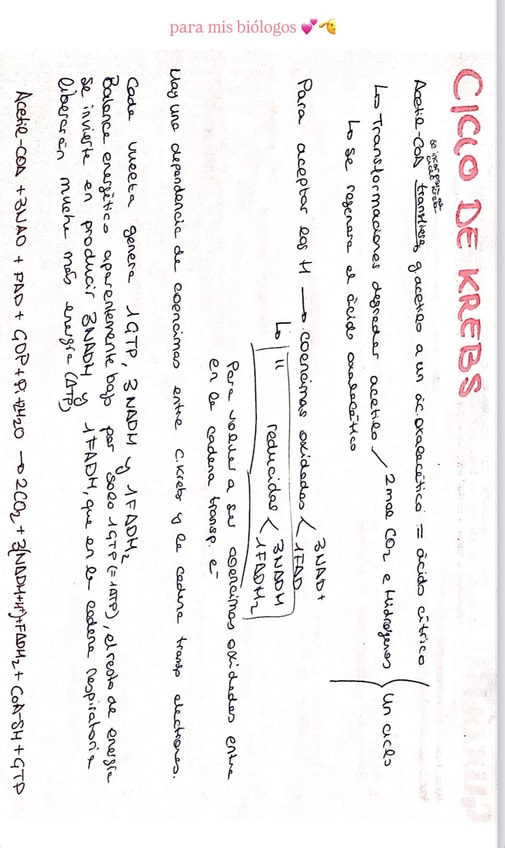 para mis biólogos 💕🫡
CICLO DE KREBS
se incorpora al
ciclo Krebs
Acetil-CoA transfiere g acetilo a un ác oxalacético = ácido cítrico
↳ Transformaciones degradar acetilo / 2 mol CO2 e Hidrógenos } un ciclo
↳ se regenera el ácido oxalacético
Para aceptar los H → coenzimas oxidadas < 3NAD+
1FAD
↳ " reducidas < 3NADH
1FADH2
Para volver a ser coenzimas oxidadas entra
en la cadena transp. e-
Hay una dependencia de coenzimas entre c. Krebs y la cadena transp electrones.
Cada vuelta genera 1GTP, 3NADH y 1FADH2
Balance energético aparentemente bajo por solo 1GTP (=1ATP), el resto de energía
se invierte en producir 3NADH y 1FADH2 que en la cadena respiratoria
liberarán mucha más energía (ATP)
Acetil-COA + 3NAD + FAD + GDP + Pi + 2H2O → 2CO2 + 3(NADH+H+) + FADH2 + CoA-SH + GTP